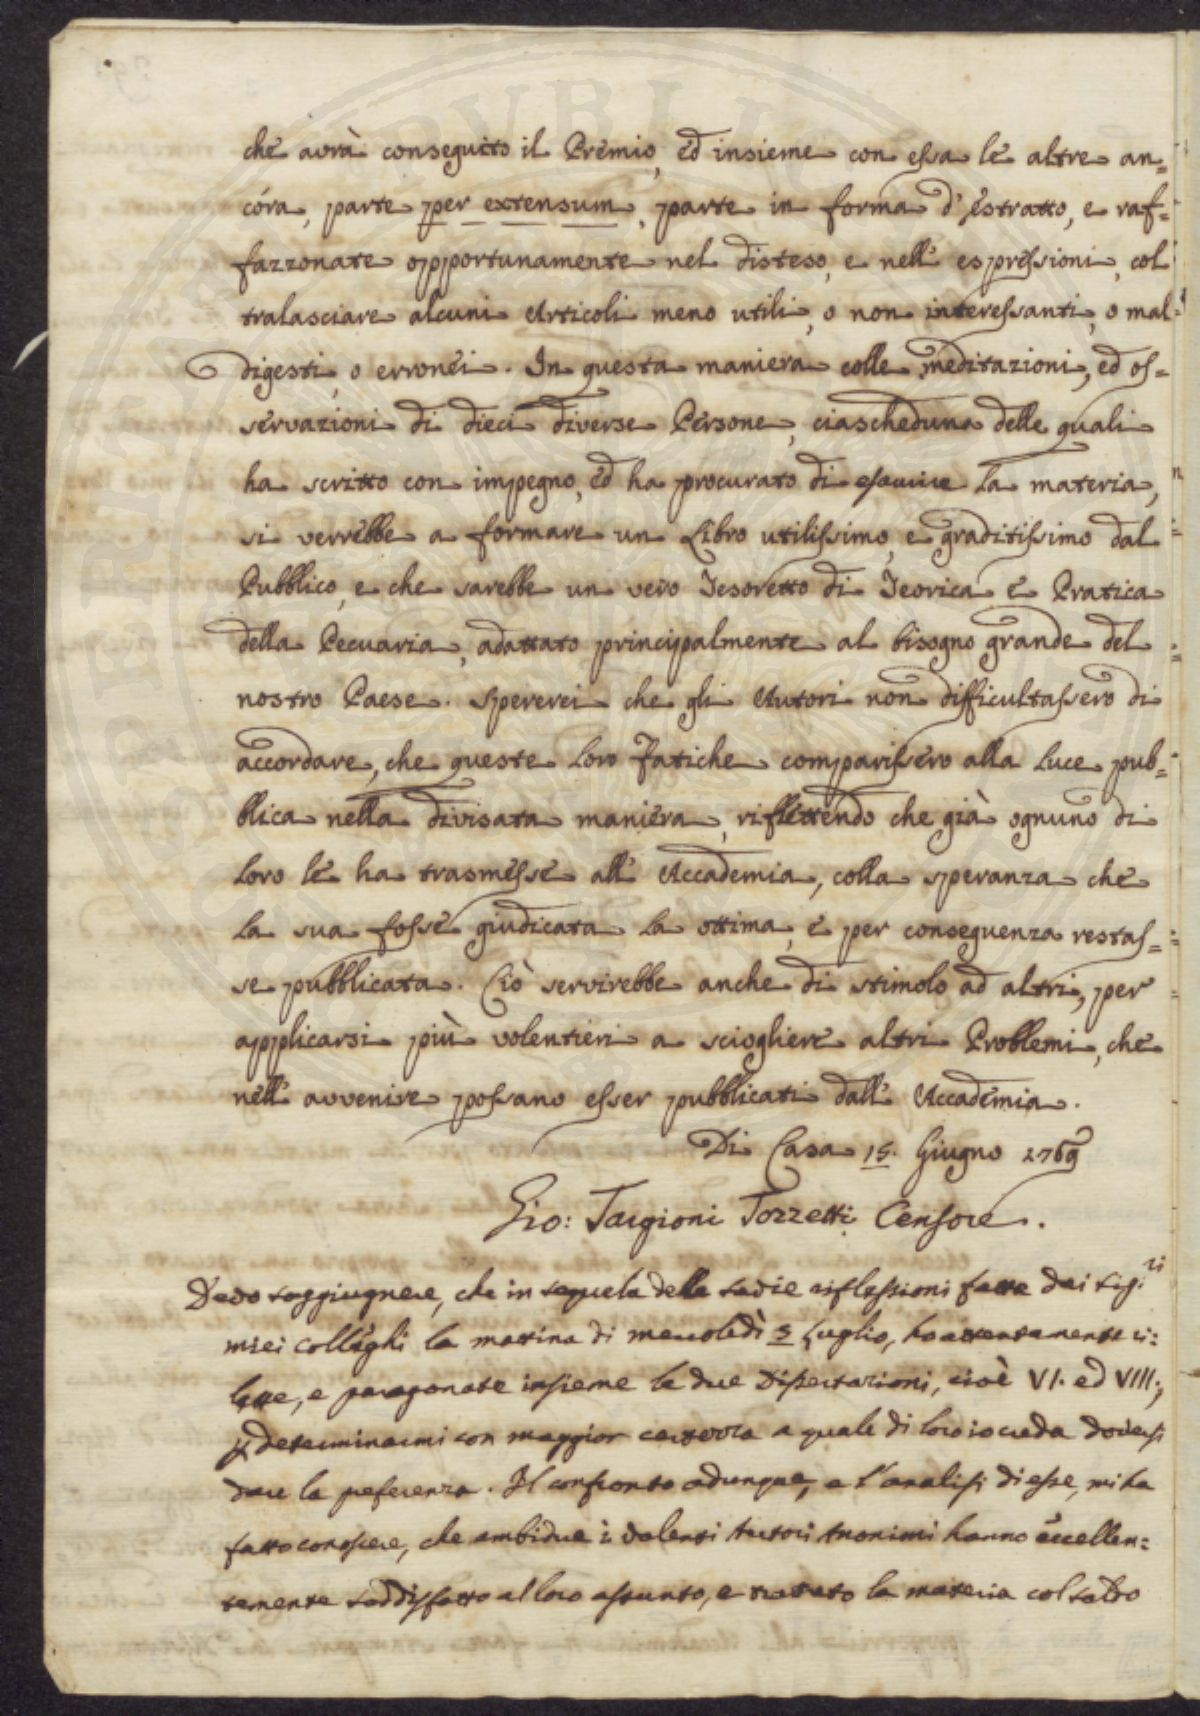 che avrà conseguito il Premio, ed insieme con essa le altre an=
córa, parte per extensum, parte in forma d'Estratto, e raf=
fazzonate opportunamente nel disteso, e nell'espressioni, col
tralasciare alcuni Articoli meno utili, o non interessanti, o mal=
digesti, o erronei. In questa maniera colle meditazioni, ed os=
servazioni di dieci diverse Persone, ciascheduna delle quali
ha scritto con impegno, ed ha procurato di esaurire la materia,
si verrebbe a formare un Libro utilissimo, e graditissimo dal
Pubblico, e che sarebbe un vero Tesoretto di Teorica e Pratica
della Pecuaria, adattato principalmente al bisogno grande del
nostro Paese. Spererei che gli Autori non difficultassero di
accordare, che queste loro Fatiche comparissero alla luce pub=
blica nella divisata maniera, riflettendo che già ognuno di
loro le ha trasmesse all'Accademia, colla speranza che
la sua fosse giudicata la ottima, e per conseguenza restas=
se pubblicata. Ciò servirebbe anche di stimolo ad altri, per
applicarsi più volentieri a sciogliere altri Problemi, che
nell'avvenire possano esser pubblicati dall'Accademia.
Di Casa 15. Giugno 1769
Gio: Targioni Tozzetti Censore.
Devo soggiugnere, che in sequela delle savie riflessioni fatte dai Sigri
miei colleghi la mattina di mercoledì 5 Luglio, ho attentamente ri=
lette, e paragonate insieme le due Dissertazioni, cioè VI. ed VIII.,
p determinarmi con maggior certezza a quale di loro io creda doversi
dare la preferenza. Il confronto adunque, e l'analisi di esse, mi ha
fatto conoscere, che ambidue i valenti Autori Anonimi hanno eccellen=
temente soddisfatto al loro assunto, e trattato la materia col saldo